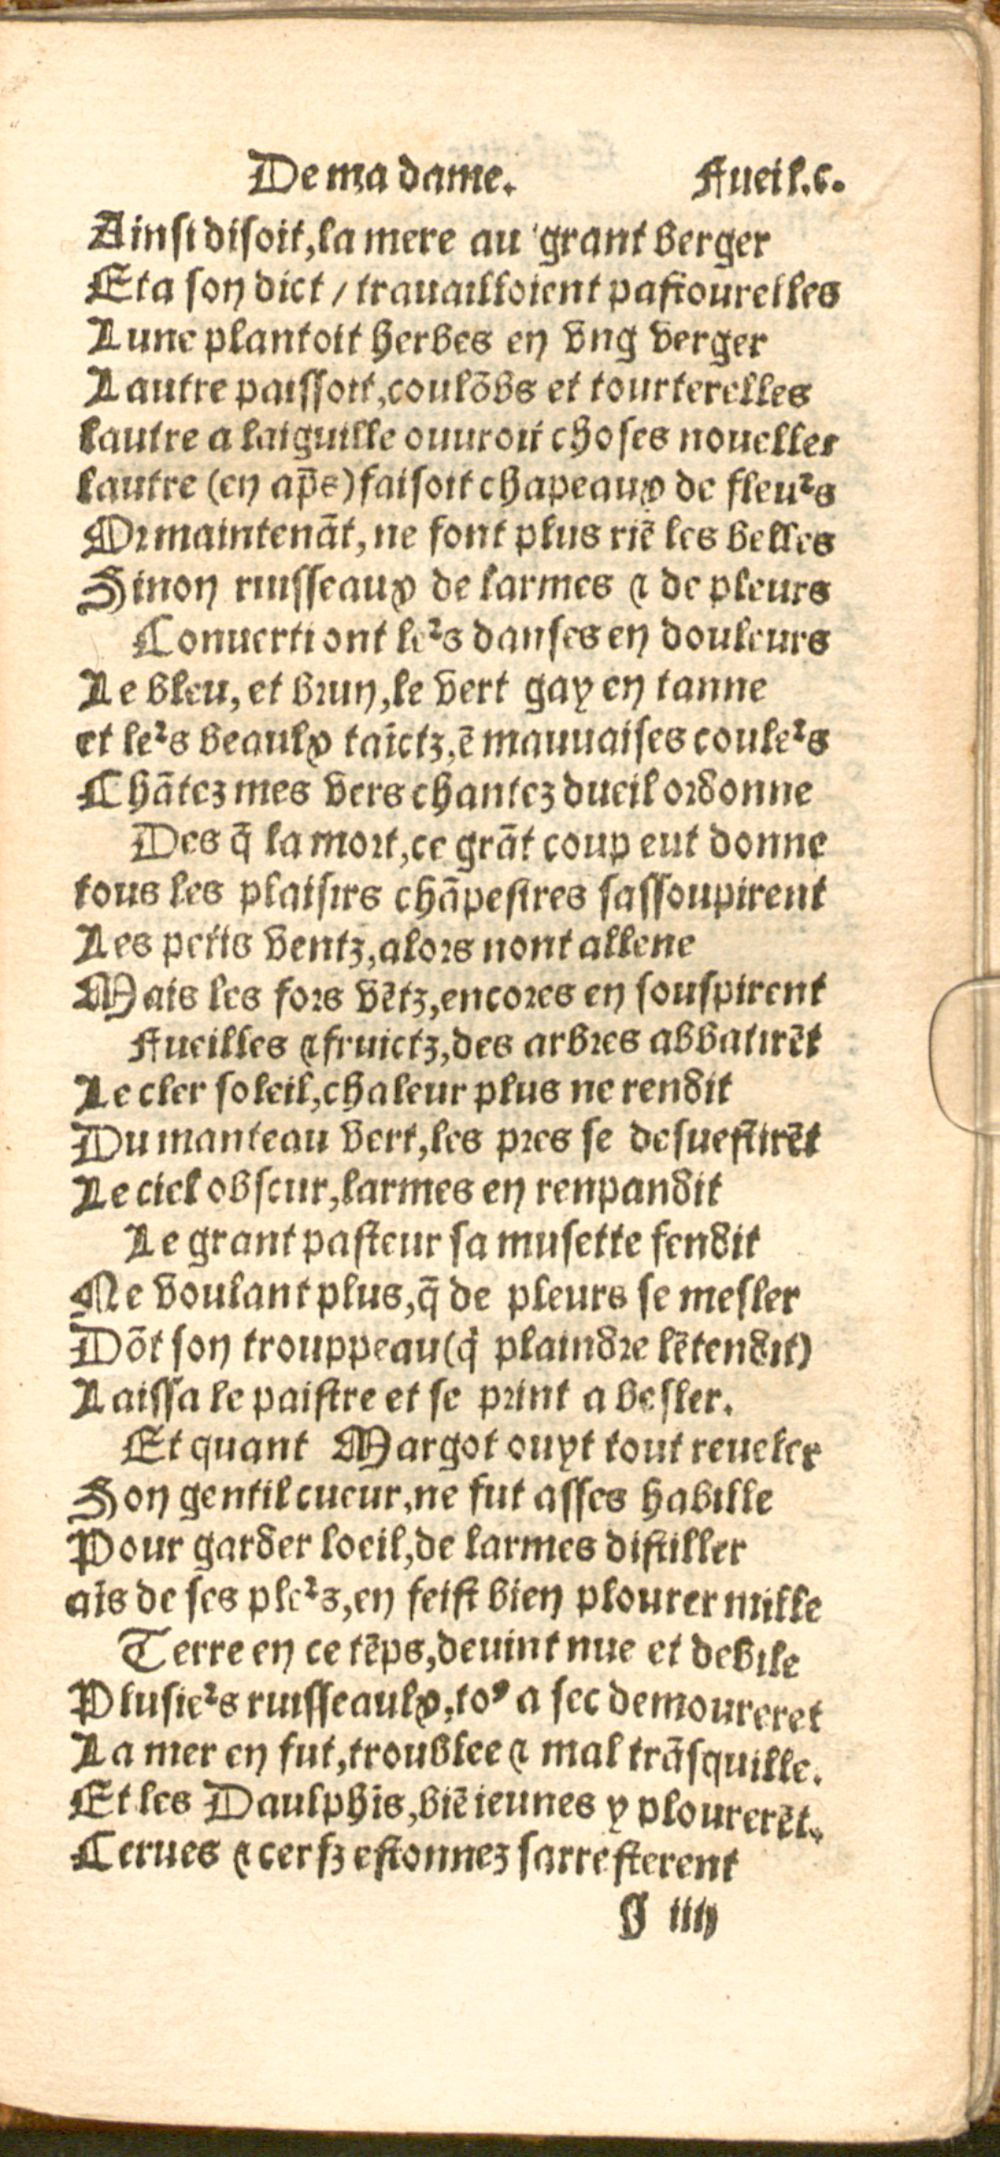 De ma dame. Fueil.c.
Ainsi disoit, la mere au grant berger
Et a son dict / trauailloient pastourelles
Lune plantoit herbes en vng verger
Lautre paissoit, coulõbs et tourterelles
lautre a laiguille ouuroit choses nouelles
lautre (en ap̃s) faisoit chapeaux de fleurs
Or maintenãt, ne font plus riẽ les belles
Sinon ruisseaux de larmes ⁊ de pleurs
Conuerti ont lers danses en douleurs
Le bleu, et brun, le vert gay en tanne
et lers beaulx taĩctz, ẽ mauuaises coulers
Chãtez mes vers chantez dueil ordonne
Des q̃ la mort, ce grãt coup eut donne
tous les plaisirs chãpestres sassoupirent
Les petis ventz, alors nont allene
Mais les fors vẽtz, encores en souspirent
Fueilles ⁊ fruictz, des arbres abbatirẽt
Le cler soleil, chaleur plus ne rendit
Du manteau vert, les pres se desuestirẽt
Le ciel obscur, larmes en renpandit
Le grant pasteur sa musette fendit
Ne voulant plus, q̃ de pleurs se mesler
Dõt son trouppeau (q̃ plaindre lẽtendit)
Laissa le paistre et se print a besler.
Et quant Margot ouyt tout reueler
Son gentil cueur, ne fut asses habille
Pour garder loeil, de larmes distiller
aĩs de ses plerz, en feist bien plourer mille
Terre en ce tẽps, deuint nue et debile
Plusiers ruisseaulx, toꝰ a sec demoureret
La mer en fut, troublee ⁊ mal trãsquille.
Et les Daulphĩs, biẽ ieunes y plourerẽt.
Cerues ⁊ cerfz estonnez sarresterent
iiij